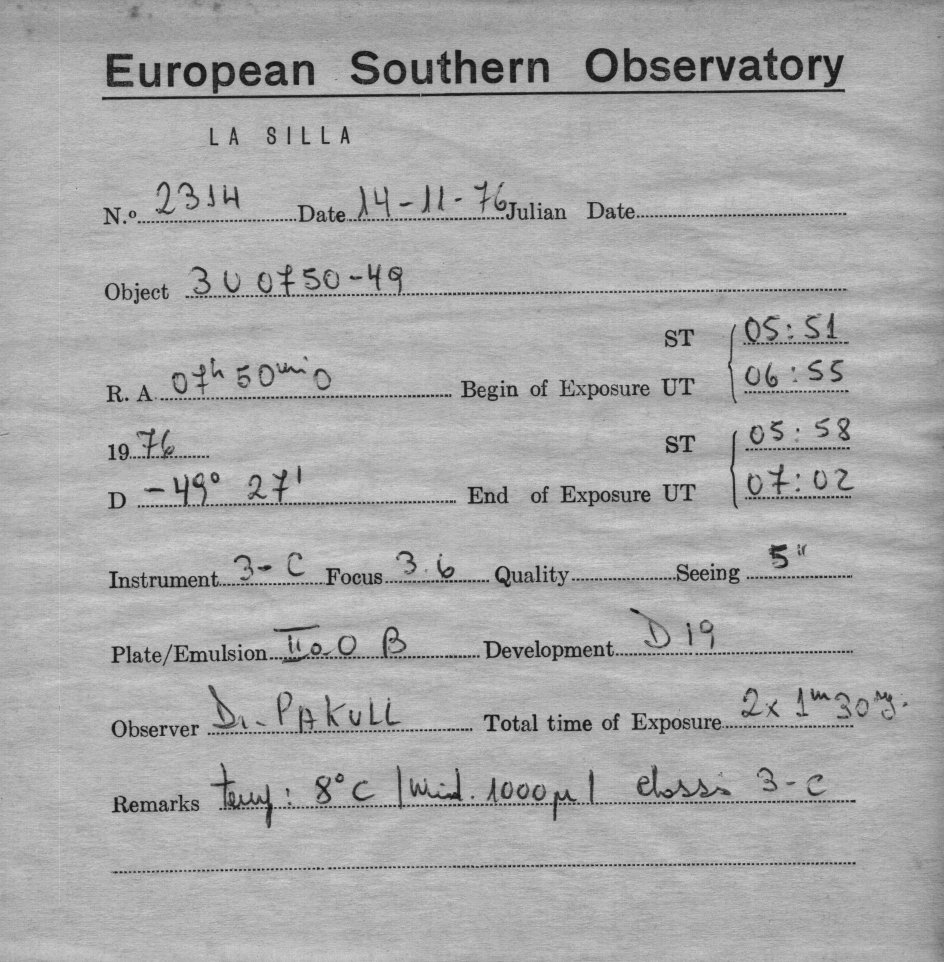 European Southern Observatory
LA SILLA
N.º 2314 Date 14-11-76 Julian Date
Object 3U 0750-49
ST 05:51
R. A. 07h 50min 0 Begin of Exposure UT 06:55
1976 ST 05:58
D -49° 27' End of Exposure UT 07:02
Instrument 3-C Focus 3.6 Quality Seeing 5"
Plate/Emulsion IIaO B Development D19
Observer Dr. PAKULL Total time of Exposure 2x 1m 30
Remarks temp: 8°C | wid. 1000µ | 3-C